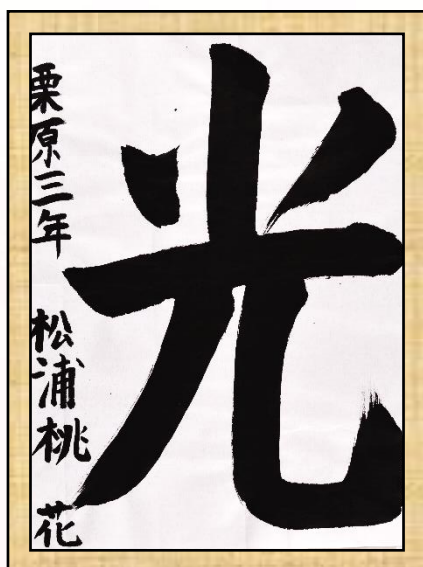 光
栗原三年 松浦桃花